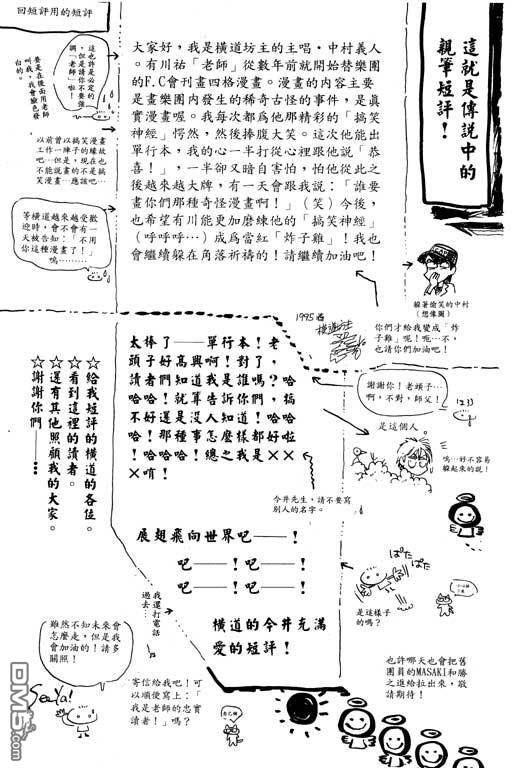 回短評用的短評
這就是傳說中的
親筆短評！
大家好，我是橫道坊主的主唱・中村義人
。有川祐「老師」從數年前就開始替樂團
的F.C會刊畫四格漫畫。漫畫的內容主要
是畫樂團內發生的稀奇古怪的事件，是真
實漫畫喔。我每次都為他那精彩的「搞笑
神經」愕然，然後捧腹大笑。這次他能出
單行本，我的心一半打從心裡跟他說「恭
喜！」，一半卻又暗自害怕，怕他從此之
後越來越大牌，有一天會跟我說：「誰要
畫你們那種奇怪漫畫啊！」（笑）今後，
也希望有川能更加磨練他的「搞笑神經」
（呼呼呼…）成為當紅「炸子雞」！我也
會繼續躲在角落祈禱的！請繼續加油吧！
這也許是必定的
，但是請你不要強
調「老師」啦！
要是在後面用老師
叫我，我會臉色發
白的。
以前曾以搞笑漫畫
工作一陣子的緣故
吧…但是，現在也
不能說畫的不是搞
笑漫畫…應該吧…
等橫道越來越受歡
迎時，會不會有一
天被告知：「不用
你這種漫畫了！」
嗚……
躲著偷笑的中村
（想像圖）
你們才給我變成「炸
子雞」呢！呃…不，
也請你們加油吧！
1995.
橫道坊主
太棒了——單行本！老
頭子好高興啊！對了，
讀者們知道我是誰嗎？哈
哈哈！就算告訴你們，搞
不好還是沒人知道！哈哈
哈！那種事怎麼樣都好啦
！哈哈哈！總之我是××
×唷！
謝謝你！老頭子…
啊，不對，師父！
是這個人
嗚…好不容易
躲起來的說！
今井先生，請不要寫
別人的名字。
☆給我短評的橫道的各位。
☆看到這裡的讀者。
☆還有其他照顧我的大家。
☆謝謝你們——…
展翅飛向世界吧——！
吧——！吧——！
吧——！吧——！
橫道的今井充滿
愛的短評！
ぱた
ぱた
是這樣子
的嗎？
我還打電話
過去…
雖然不知未來會
怎麼走，但是我
會加油的！請多
關照！
寄信給我吧！可
以順便寫上：「
我是老師的忠實
讀者！」嗎？
也許哪天也會把舊
團員的MASAKI和勝
之進給拉出來，敬
請期待！
DM5.com